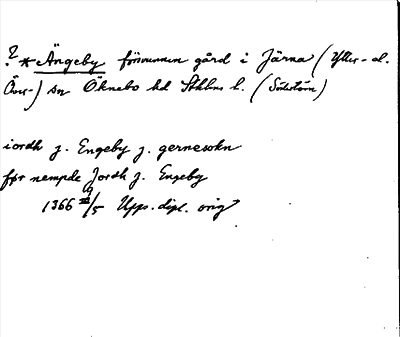 ? * Ängeby försvunnen gård i Järna (Ytter- el.
Över-) sn Öknebo hd Sthlms l. (Söderstöm)
iordh j. Engeby j. gernesokn
før nempde Jordh j. Engeby
1366 19/5 Upps. dipl. orig